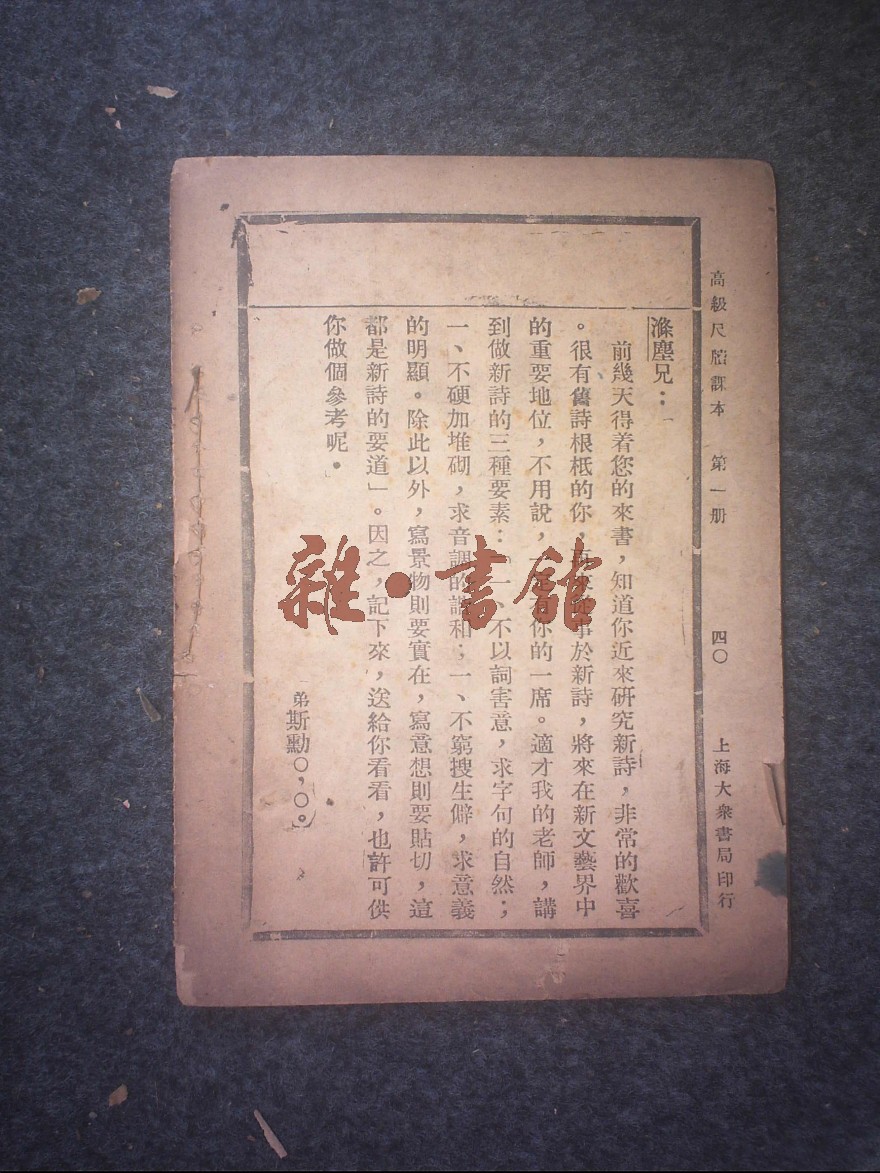 高級尺牘課本 第一册 四〇 上海大衆書局印行
滌塵兄：
前幾天得着您的來書，知道你近來研究新詩，非常的歡喜
。很有舊詩根柢的你，再來從事於新詩，將來在新文藝界中
的重要地位，不用說，一定有你的一席。適才我的老師，講
到做新詩的三種要素：「一、不以詞害意，求字句的自然；
一、不硬加堆砌，求音調的諧和；一、不窮搜生僻，求意義
的明顯。除此以外，寫景物則要實在，寫意想則要貼切，這
都是新詩的要道」。因之，記下來，送給你看看，也許可供
你做個參考呢。
弟斯勳〇，〇。
雜·書館